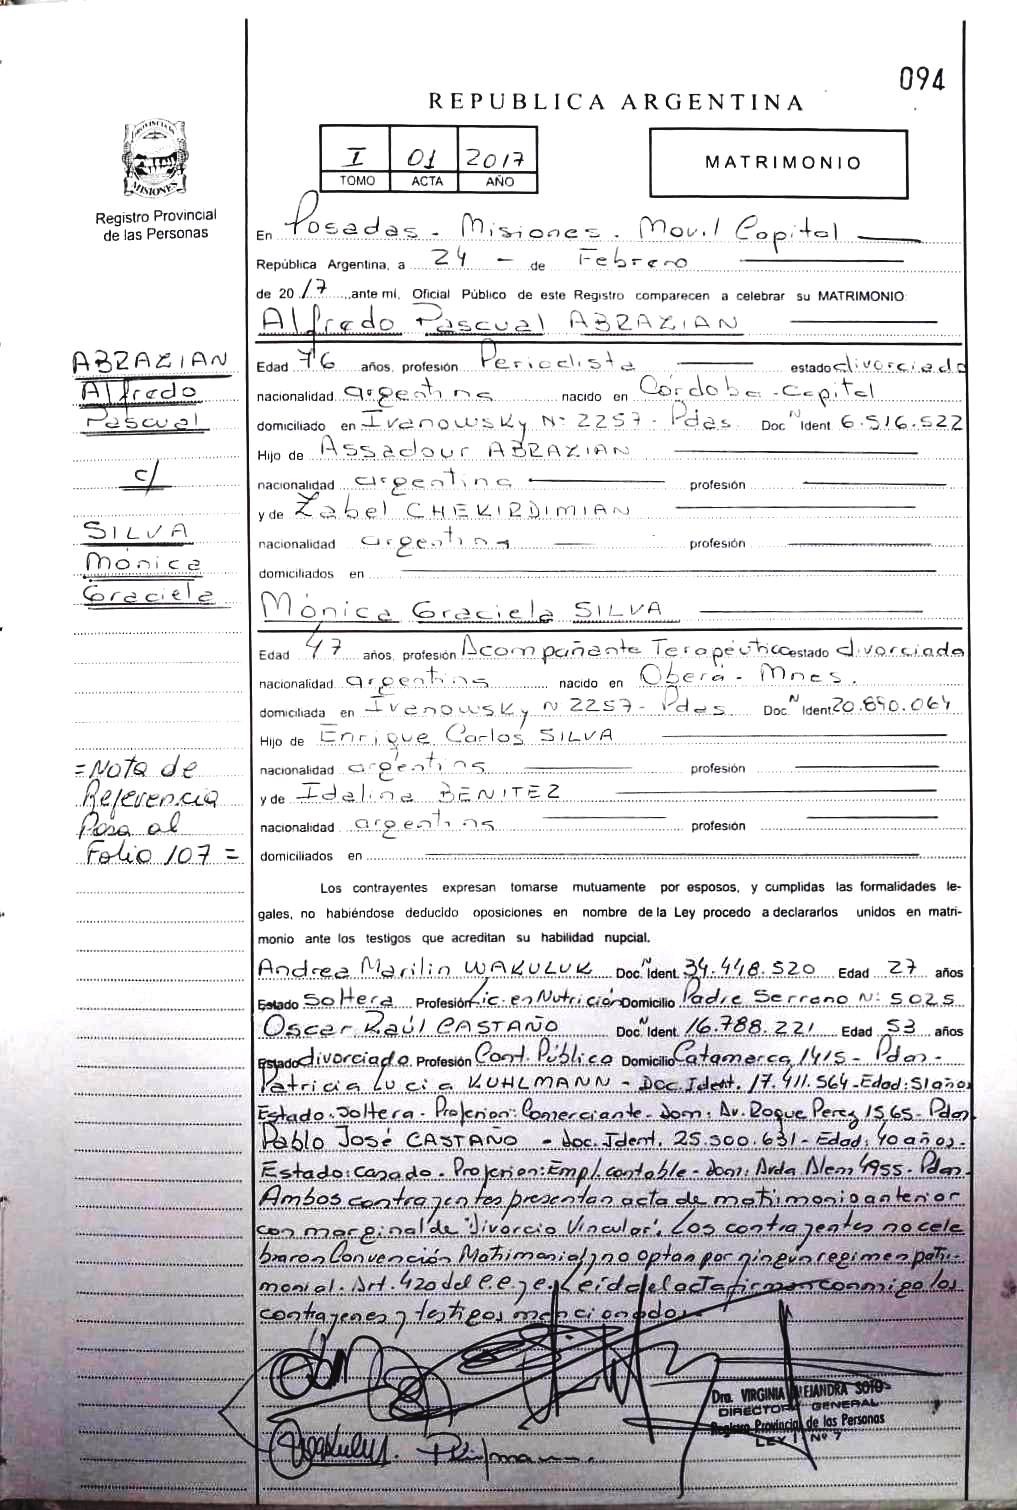 094
REPUBLICA ARGENTINA
I 01 2017
TOMO ACTA AÑO
MATRIMONIO
PROVINCIA DE MISIONES
Registro Provincial
de las Personas
En Posadas - Misiones - Movil Capital
República Argentina, a 24 - de Febrero
de 2017, ante mí, Oficial Público de este Registro comparecen a celebrar su MATRIMONIO:
Alfredo Pascual ABRAZIAN
Edad 76 años, profesión Periodista estado divorciado
nacionalidad argentina nacido en Córdoba - Capital
domiciliado en Ivanowsky Nº 2257 - Pdas. Doc N Ident 6.516.522
Hijo de Assadour ABRAZIAN
nacionalidad argentina profesión
y de Zabel CHEKIRDIMIAN
nacionalidad argentina profesión
domiciliados en
Mónica Graciela SILVA
Edad 47 años, profesión Acompañante Terapéutica estado divorciada
nacionalidad argentina nacido en Oberá - Mnes.
domiciliada en Ivanowsky N 2257 - Pdas Doc. N Ident 20.890.064
Hijo de Enrique Carlos SILVA
nacionalidad argentina profesión
y de Idalina BENITEZ
nacionalidad argentina profesión
domiciliados en
ABRAZIAN
Alfredo
Pascual
c/
SILVA
Mónica
Graciela
=Nota de
Referencia
Pasa al
Folio 107=
Los contrayentes expresan tomarse mutuamente por esposos, y cumplidas las formalidades le-
gales, no habiéndose deducido oposiciones en nombre de la Ley procedo a declararlos unidos en matri-
monio ante los testigos que acreditan su habilidad nupcial.
Andrea Marilin WAKULUK Doc. N Ident. 34.448.520 Edad 27 años
Estado Soltera Profesión Lic. en Nutrición Domicilio Padre Serrano Nº 5025
Oscar Raúl CASTAÑO Doc. N Ident. 16.788.221 Edad 53 años
Estado divorciado Profesión Cont. Público Domicilio Catamarca 1415 - Pdas -
Patricia Lucia KUHLMANN - Doc. Ident. 17.411.564 - Edad: 51 años
Estado: Soltera - Profesion: Comerciante - Dom: Av. Roque Perez 1565 - Pdas
Pablo José CASTAÑO - Doc. Ident. 25.300.631 - Edad: 40 años -
Estado: Casado - Profesion: Empl. contable - Dom: Avda Alem 4955 - Pdas -
Ambos contrayentes presentan acta de matrimonio anterior
con marginal de "Divorcio Vincular". Los contrayentes no cele
braron Convención Matrimonial y no optan por ningún regimen patri-
monial. Art. 420 del C.C. y C. Leída el acta firman conmigo los
contrayenes y testigos mencionados
Dra. VIRGINIA ALEJANDRA SOTO
DIRECTORA GENERAL
Registro Provincial de las Personas
LEY I Nº 7